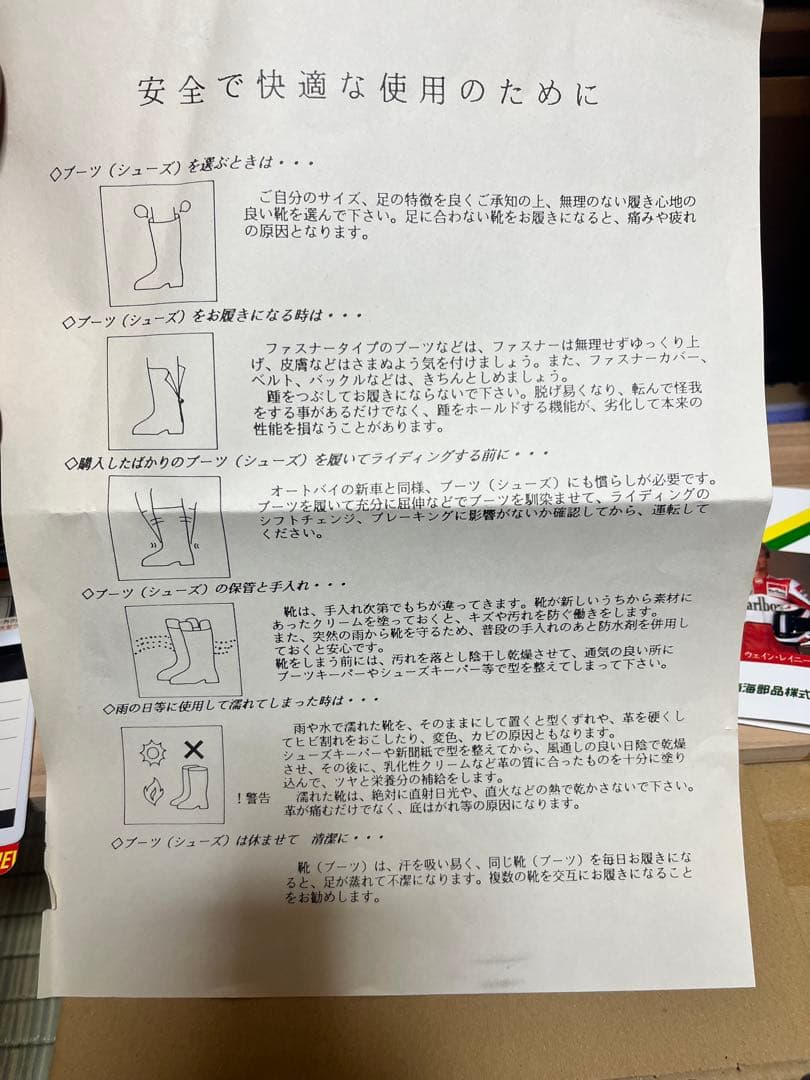 安全で快適な使用のために
◇ブーツ（シューズ）を選ぶときは・・・
ご自分のサイズ、足の特徴を良くご承知の上、無理のない履き心地の
良い靴を選んで下さい。足に合わない靴をお履きになると、痛みや疲れ
の原因となります。
◇ブーツ（シューズ）をお履きになる時は・・・
ファスナータイプのブーツなどは、ファスナーは無理せずゆっくり上
げ、皮膚などはさまぬよう気を付けましょう。また、ファスナーカバー、
ベルト、バックルなどは、きちんとしめましょう。
踵をつぶしてお履きにならないで下さい。脱げ易くなり、転んで怪我
をする事があるだけでなく、踵をホールドする機能が、劣化して本来の
性能を損なうことがあります。
◇購入したばかりのブーツ（シューズ）を履いてライディングする前に・・・
オートバイの新車と同様、ブーツ（シューズ）にも慣らしが必要です。
ブーツを履いて充分に屈伸などでブーツを馴染ませて、ライディングの
シフトチェンジ、ブレーキングに影響がないか確認してから、運転して
ください。
◇ブーツ（シューズ）の保管と手入れ・・・
靴は、手入れ次第でもちが違ってきます。靴が新しいうちから素材に
あったクリームを塗っておくと、キズや汚れを防ぐ働きをします。
また、突然の雨から靴を守るため、普段の手入れのあと防水剤を併用し
ておくと安心です。
靴をしまう前には、汚れを落とし陰干し乾燥させて、通気の良い所に
ブーツキーパーやシューズキーパー等で型を整えてしまって下さい。
◇雨の日等に使用して濡れてしまった時は・・・
雨や水で濡れた靴を、そのままにして置くと型くずれや、革を硬くし
てヒビ割れをおこしたり、変色、カビの原因ともなります。
シューズキーパーや新聞紙で型を整えてから、風通しの良い日陰で乾燥
させ、その後に、乳化性クリームなど革の質に合ったものを十分に塗り
込んで、ツヤと栄養分の補給をします。
！警告 濡れた靴は、絶対に直射日光や、直火などの熱で乾かさないで下さい。
革が痛むだけでなく、底はがれ等の原因になります。
◇ブーツ（シューズ）は休ませて 清潔に・・・
靴（ブーツ）は、汗を吸い易く、同じ靴（ブーツ）を毎日お履きにな
ると、足が蒸れて不潔になります。複数の靴を交互にお履きになること
をお勧めします。
Marlbo
ウェイン・レイニー
海部品株式